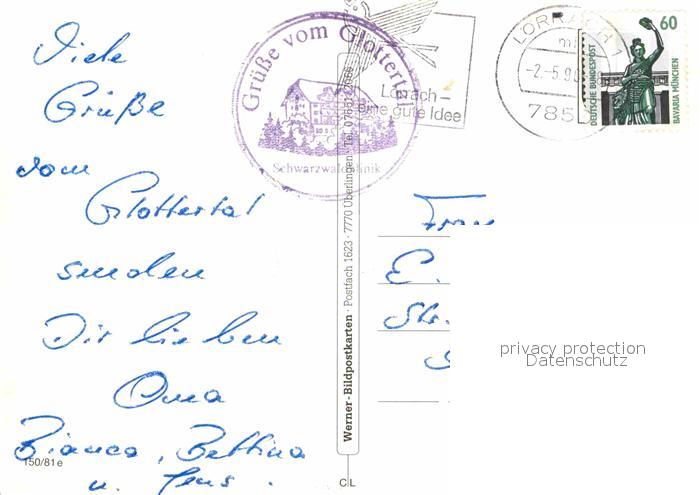 Viele
Grüße
vom
Glottertal
senden
Dir lieben
Oma
Bianca, Bettina
u. Jens.
150/81e
Grüße vom Glottertal
Schwarzwaldklinik
Lörrach –
eine gute Idee
LÖRRACH 1
785
60
DEUTSCHE BUNDESPOST
BAVARIA MÜNCHEN
Werner-Bildpostkarten · Postfach 1623 · 7770 Überlingen
CL
Frau
E.
Str.
privacy protection
Datenschutz